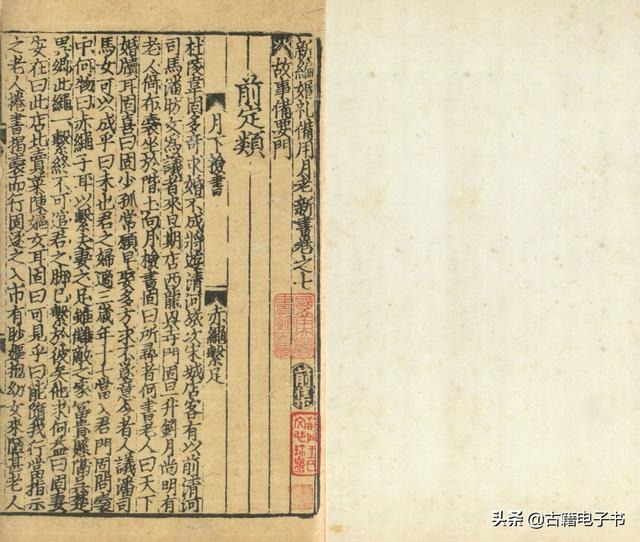 新編婚礼備用月老新書卷之七
前集
故事備要門
前定類
月下檢書　赤繩繫足
杜陵韋固多奇求婚不成將遊清河旅次宋城店客有以前清河
司馬潘昉女為議者來日期店西龍興寺門固旦斗斜月尚明有
老人倚布囊坐於階上向月檢書固曰所尋者何書老人曰天下
婚牘耳固喜曰固少孤常願早娶多方求不遂意今者人議潘司
馬女可以成乎曰未也君之婦適三歲年十七當入君門固問囊
中何物曰赤繩子耳以繫夫妻之足雖讎敵之家富貴縣隔吳楚
異鄉此繩一繫終不可逭君之脚已繫於彼矣他求何益曰固妻
安在曰此店北賣菜陳嫗女耳固曰可見乎曰能隨我行當指示
之老人捲書揭囊而行固逐之入市有眇嫗抱幼女來陋甚老人
头条 @古籍电子书